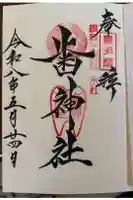 奉拝
歯神社
令和八年五月廿四日